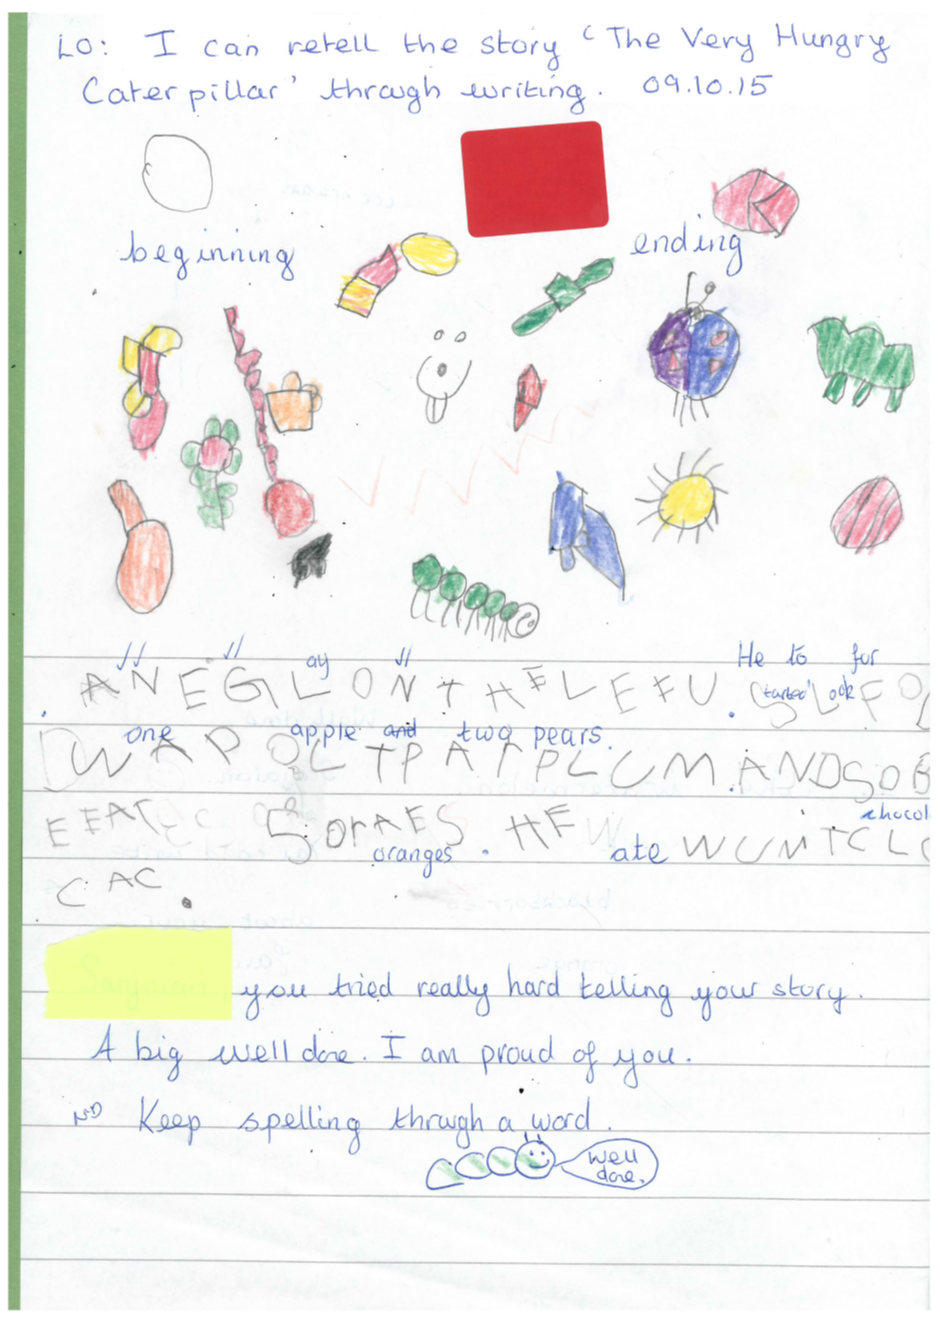 LO: I can retell the story 'The Very Hungry
Caterpillar' through writing. 09.10.15
beginning
ending
ay
He to for
ANEGLONTHELEEU. SLFOL
tarted ook
one apple and two pears.
WAPOLTPATPLCUM.ANDSOB
chocol
EEAT GORAES HE ate WUMTCLC
oranges.
CAC.
you tried really hard telling your story.
A big well done. I am proud of you.
Keep spelling through a word.
well
done.